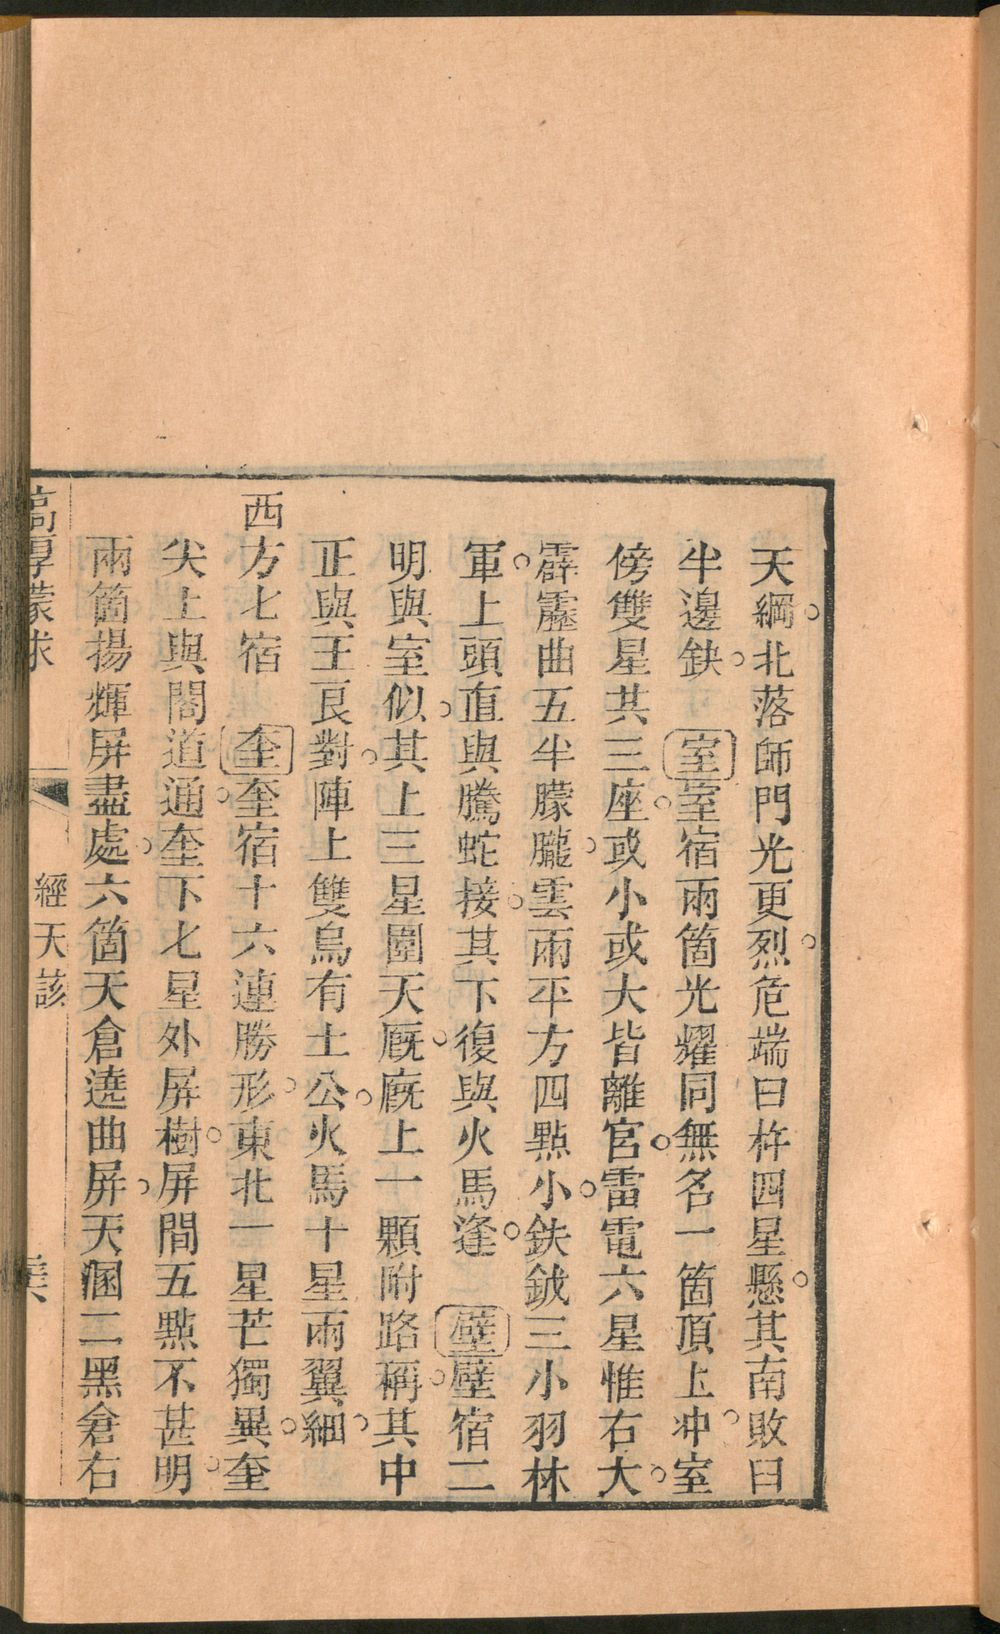 天綱。北落師門光更烈。危端曰杵四星懸。其南敗臼
半邊缺。室室宿兩箇光耀同。無名一箇頂上冲。室
傍雙星共三座。或小或大皆離宮。雷電六星惟右大。
霹靂曲五半朦朧。雲雨平方四點小。鈇鉞三小羽林
軍。上頭直與騰蛇接。其下復與火馬逢。壁壁宿二
明與室似。其上三星圍天厩。廐上一顆附路稱。其中
正與王良對。陣上雙烏有土公。火馬十星兩翼細。
西方七宿奎奎宿十六連勝形。東北一星芒獨異。奎
尖上與閣道通。奎下七星外屏樹。屏間五點不甚明。
兩箇揚輝屏盡處。六箇天倉遶曲屏。天溷二黑倉右
高厚蒙求
經天該